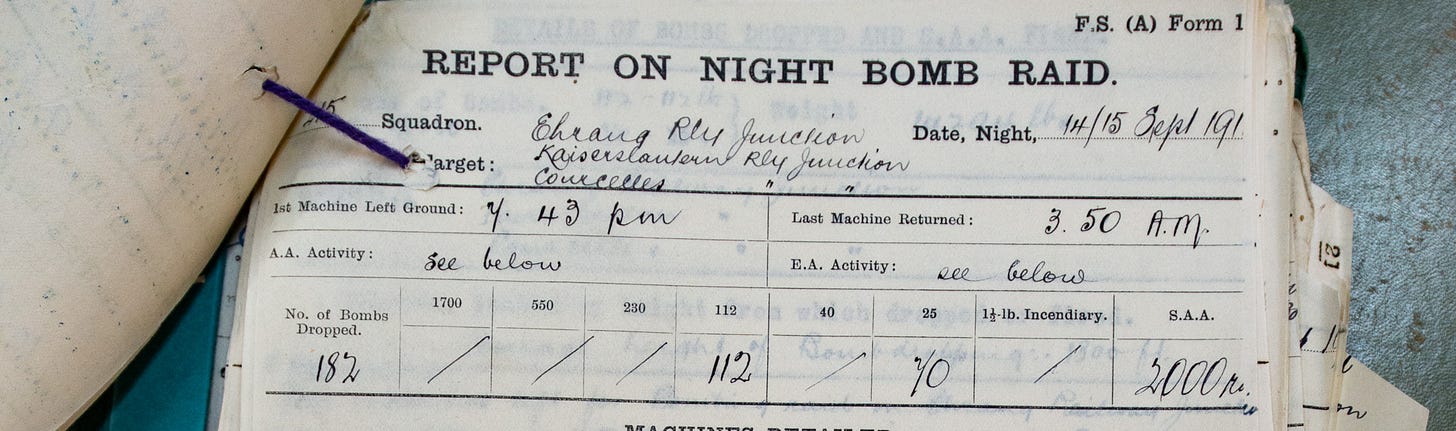 F.S. (A) Form 1
DETAILS OF BOMBS DROPPED AND S.A.A. FIRED.
REPORT ON NIGHT BOMB RAID.
Squadron.
Date, Night, 14/15 Sept 191
Target:
Ehrang Rly Junction
Kaiserslautern Rly Junction
Courcelles " "
1st Machine Left Ground: 7. 43 pm
Last Machine Returned: 3. 50 A.M.
A.A. Activity: see below
E.A. Activity: see below
No. of Bombs Dropped. 1700 550 230 112 40 25 1½-lb. Incendiary. S.A.A.
182 / / / 112 / 70 / 2000
21